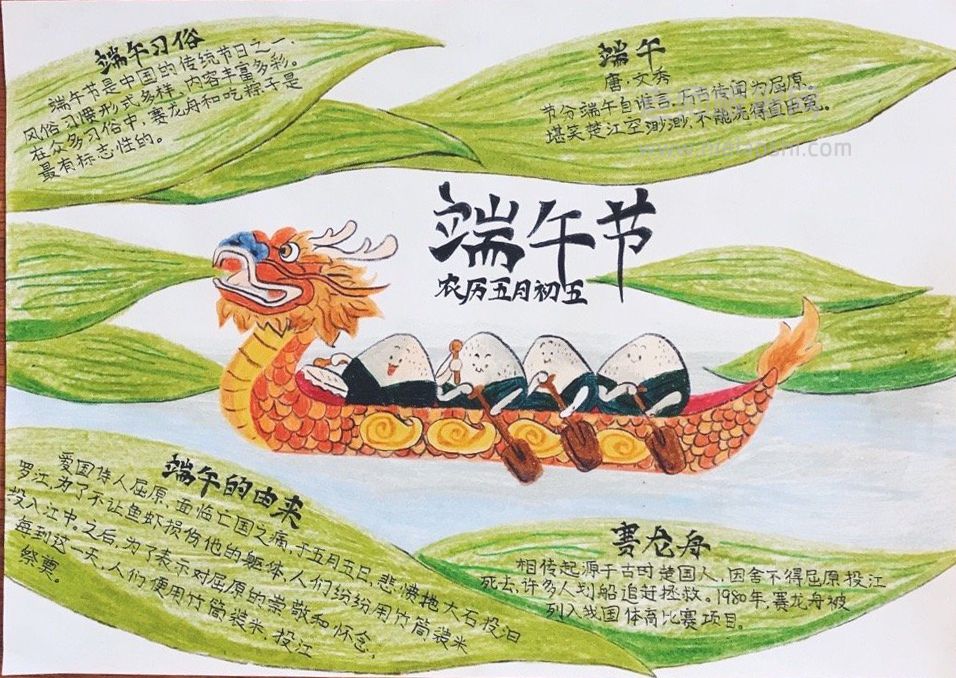 端午习俗
端午节是中国的传统节日之一,
风俗习惯形式多样,内容丰富多彩。
在众多习俗中,赛龙舟和吃粽子是
最有标志性的。
端午
唐·文秀
节分端午自谁言,万古传闻为屈原。
堪笑楚江空渺渺,不能洗得直臣冤。
端午节
农历五月初五
端午的由来
爱国诗人屈原,面临亡国之痛,于五月五日,悲愤抱大石投汨
罗江,为了不让鱼虾损伤他的躯体,人们纷纷用竹筒装米
投入江中。之后,为了表示对屈原的崇敬和怀念,
每到这一天,人们便用竹筒装米,投江
祭奠。
赛龙舟
相传起源于古时楚国人,因舍不得屈原投江
死去,许多人划船追赶拯救。1980年,赛龙舟被
列入我国体育比赛项目。